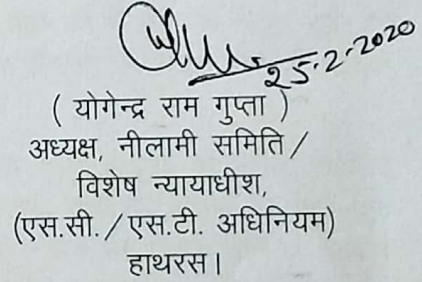 25-2-2020
( योगेन्द्र राम गुप्ता )
अध्यक्ष, नीलामी समिति /
विशेष न्यायाधीश,
(एस.सी. / एस.टी. अधिनियम)
हाथरस।